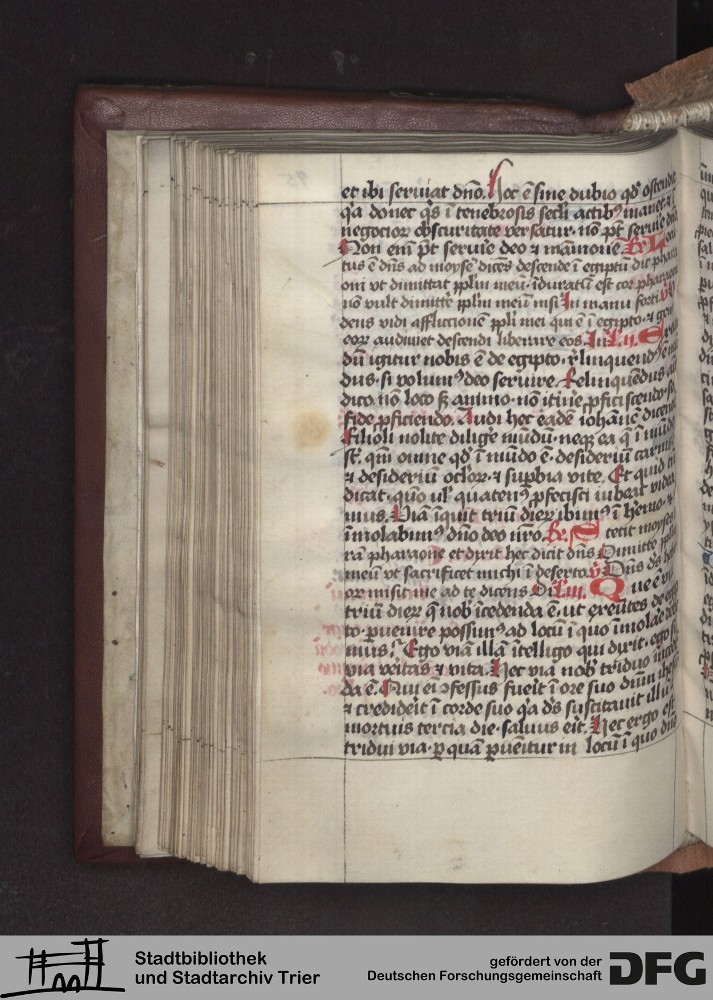 et ibi seruiat dño. Hoc ē sine dubio qđ ostendit
q'a donec q's ī tenebrosis secli actibꝰ manet ⁊ ī
negocioꝝ obscuritate versatur. nō pt̄ seruire dño
Non eni͞ pt̄ seruire deo ⁊ māmone. Rx
tus ē dn̄s ad moysē dicēs descende ī egiptū dic phara
oni vt dimittat pplm̄ meū. īduratū est cor pharaonis
nō vult dimitte pplm̄ meū nisi In manu forti. V
deus vidi afflictionē ppli mei qui ē ī egipto. ⁊ gem
eoꝝ audiui et descendi liberare eos. In Lc. ii.
dū igitur nobis ē de egipto. relinquendꝰ ē mū
dus. si volumꝰ deo seruire. Relinquēdus aū
dico. nō loco sꝫ animo. nō itīne pficiscendo. sꝫ
fide pficiendo. Audi hec eadē iohānē dicentē
Filioli nolite dilige mūdū. neqꝫ ea q̄ ī mūdo
st̄. qm̄ omne qđ ī mūdo ē. desideriū carnis
⁊ desideriū ocl'oꝝ. ⁊ supbia vite. Et quid
dicat. quō ul' quatenꝰ pfecisci iubeat videa
mus. Viā īquit triū dieꝝ ibimꝰ ī h'emo. ⁊
īmolabimꝰ dño deo nr̄o. Rx Stetit moyses
rā pharaone et dixit hec dicit dn̄s Dimitte pplm̄
meū vt sacrificet michi ī deserto. V Dn̄s ds̄ heb
oꝝ misit me ad te dicens Di Lc. iii. Que ē vi
triū dieꝝ q̄ nob' īcedenda ē. ut exeūtes de egip
to. puenire possimꝰ ad locū ī quo īmolare debe
mus. Ego viā illā ītelligo qui dixit. ego sū
via veritas ⁊ vita. Hec via nob' triduo īcedē
da ē. Qui ei ꝯfessus fuerit ī ore suo dn̄m ihesū
⁊ crediderit ī corde suo q'a ds̄ suscitauit illū
mortuis tercia die. saluus erit. Hec ergo est
tridui via. p quā puenitur in locū ī quo dño
Stadtbibliothek
und Stadtarchiv Trier
gefördert von der
Deutschen Forschungsgemeinschaft
DFG